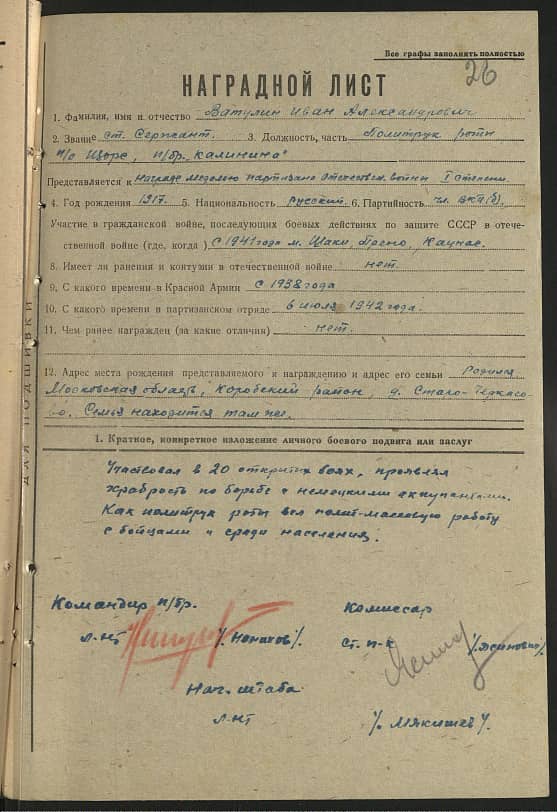 Все графы заполнять полностью
26
НАГРАДНОЙ ЛИСТ
1. Фамилия, имя и отчество Ватулин Иван Александрович
2. Звание ст. Сержант. 3. Должность, часть Политрук роты
п/о Щорс, п/бр. Калинина"
Представляется к награде медалью партизана отечествен. войны I степени.
4. Год рождения 1917. 5. Национальность русский. 6. Партийность чл. ВКП(б).
Участие в гражданской войне, последующих боевых действиях по защите СССР в отече-
ственной войне (где, когда) с 1941 года м. Шаки, Прено, Каунас.
8. Имеет ли ранения и контузии в отечественной войне нет.
9. С какого времени в Красной Армии с 1938 года
10. С какого времени в партизанском отряде 6 июля 1942 года.
11. Чем ранее награжден (за какие отличия) нет.
12. Адрес места рождения представляемого к награждению и адрес его семьи Родился
Московская область, Коробский район, д. Старо-Черкасо-
во. Семья находится там же.
ДЛЯ ПОДШИВКИ
1. Краткое, конкретное изложение личного боевого подвига или заслуг
Участвовал в 20 открытых боях, проявляя
храбрость по борьбе с немецкими оккупантами.
Как политрук роты вел полит-массовую работу
с бойцами и среди населения.
Командир п/бр. Комиссар
л-нт /. /. Ст. п-к /. /.
Нач. штаба
л-нт /. Мякишев /.